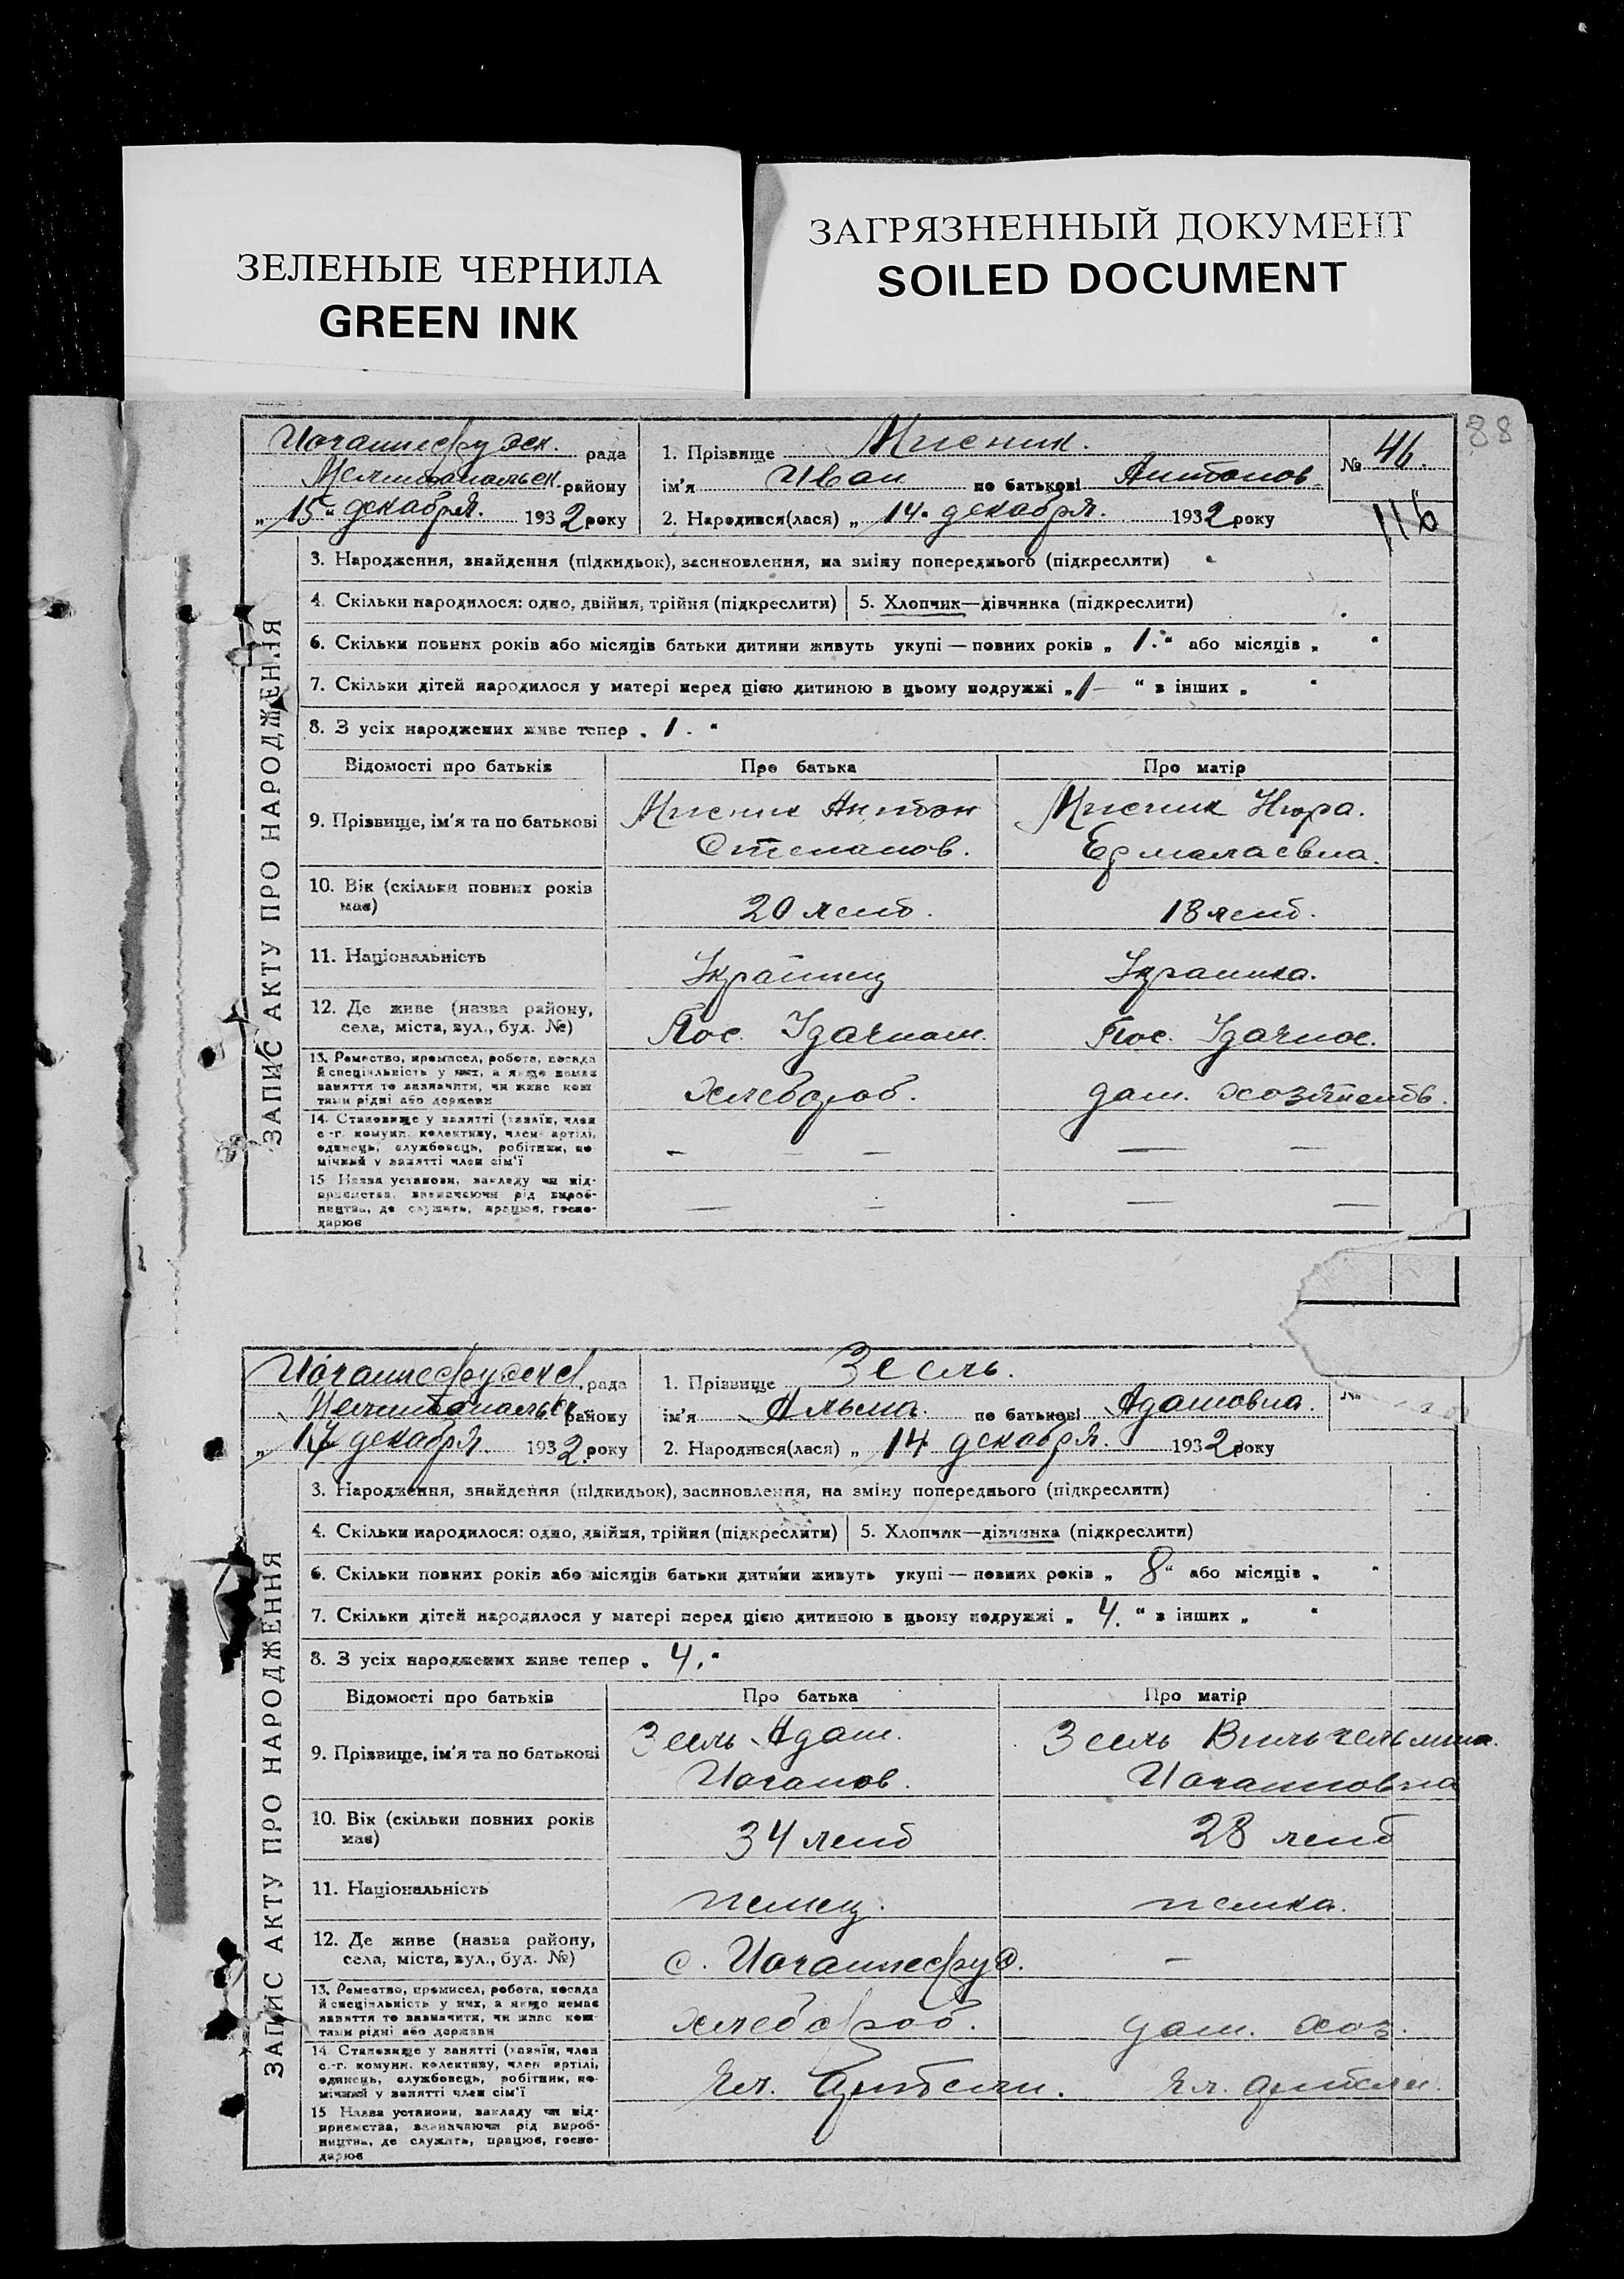 ЗЕЛЕНЫЕ ЧЕРНИЛА
GREEN INK
ЗАГРЯЗНЕННЫЙ ДОКУМЕНТ
SOILED DOCUMENT
88
Иоганнесрудск. рада
Мелитопольск. району
„ 15 " декабря. 1932 року
1. Прізвище Мисник.
ім'я Иван по батькові Антонов
2. Народився(лася) „ 14. декабря. 1932 року
№ 46.
116
ЗАПИС АКТУ ПРО НАРОДЖЕННЯ
3. Народження, знайдення (підкидьок), засиновлення, на зміну попереднього (підкреслити)
4. Скільки народилося: одно, двійня, трійня (підкреслити)
5. Хлопчик—дівчинка (підкреслити)
6. Скільки повних років або місяців батьки дитини живуть укупі — повних років „ 1. " або місяців „ "
7. Скільки дітей народилося у матері перед цією дитиною в цьому подружжі „ 1 — " в інших „ "
8. З усіх народжених живе тепер „ 1. "
Відомості про батьків Про батька Про матір
9. Прізвище, ім'я та по батькові
Мисник Антон
Степанов.
Мисник Нюра.
Ермолаевна.
10. Вік (скільки повних років має)
20 лет.
18 лет.
11. Національність
Украинец
Украинка.
12. Де живе (назва району,
села, міста, вул., буд. №)
Пос. Удачном.
Пос. Удачное.
13. Ремество, промисел, робота, посада
й спеціяльність у них, а якщо немає
заняття то зазначити, чи живе кош
тами рідні або держави
Хлебороб.
дом. хозяйств.
14. Становище у занятті (хазяїн, член
с.-г. комуни, колективу, член артілі,
одинець, службовець, робітник, по
мічний у занятті член сім'ї
15 Назва установи, закладу чи під-
приємства, зазначаючи рід вироб-
ництва, де служить, працює, госпо-
дарює
Иоганнесрудск рада
Мелитопольск району
„ 17 декабря. 1932. року
1. Прізвище Зесль.
ім'я Альма. по батькові Адамовна.
2. Народився(лася) „ 14 декабря. 1932 року
№
ЗАПИС АКТУ ПРО НАРОДЖЕННЯ
3. Народження, знайдення (підкидьок), засиновлення, на зміну попереднього (підкреслити)
4. Скільки народилося: одно, двійня, трійня (підкреслити)
5. Хлопчик—дівчинка (підкреслити)
6. Скільки повних років або місяців батьки дитини живуть укупі — повних років „ 8 " або місяців „ "
7. Скільки дітей народилося у матері перед цією дитиною в цьому подружжі „ 4. " в інших „ "
8. З усіх народжених живе тепер „ 4. "
Відомості про батьків Про батька Про матір
9. Прізвище, ім'я та по батькові
Зесль Адам.
Иоганов.
Зесль Вильгельмина.
Иоганновна
10. Вік (скільки повних років має)
34 лет
28 лет
11. Національність
немец.
немка.
12. Де живе (назва району,
села, міста, вул., буд. №)
с. Иоганнесруд.
—
13. Ремество, промисел, робота, посада
й спеціяльність у них, а якщо немає
заняття то зазначити, чи живе кош
тами рідні або держави
хлебороб.
дом. хоз.
14. Становище у занятті (хазяїн, член
с.-г. комуни, колективу, член артілі,
одинець, службовець, робітник, по
мічний у занятті член сім'ї
Чл. Артели.
Чл. артели.
15 Назва установи, закладу чи під-
приємства, зазначаючи рід вироб-
ництва, де служить, працює, госпо-
дарює